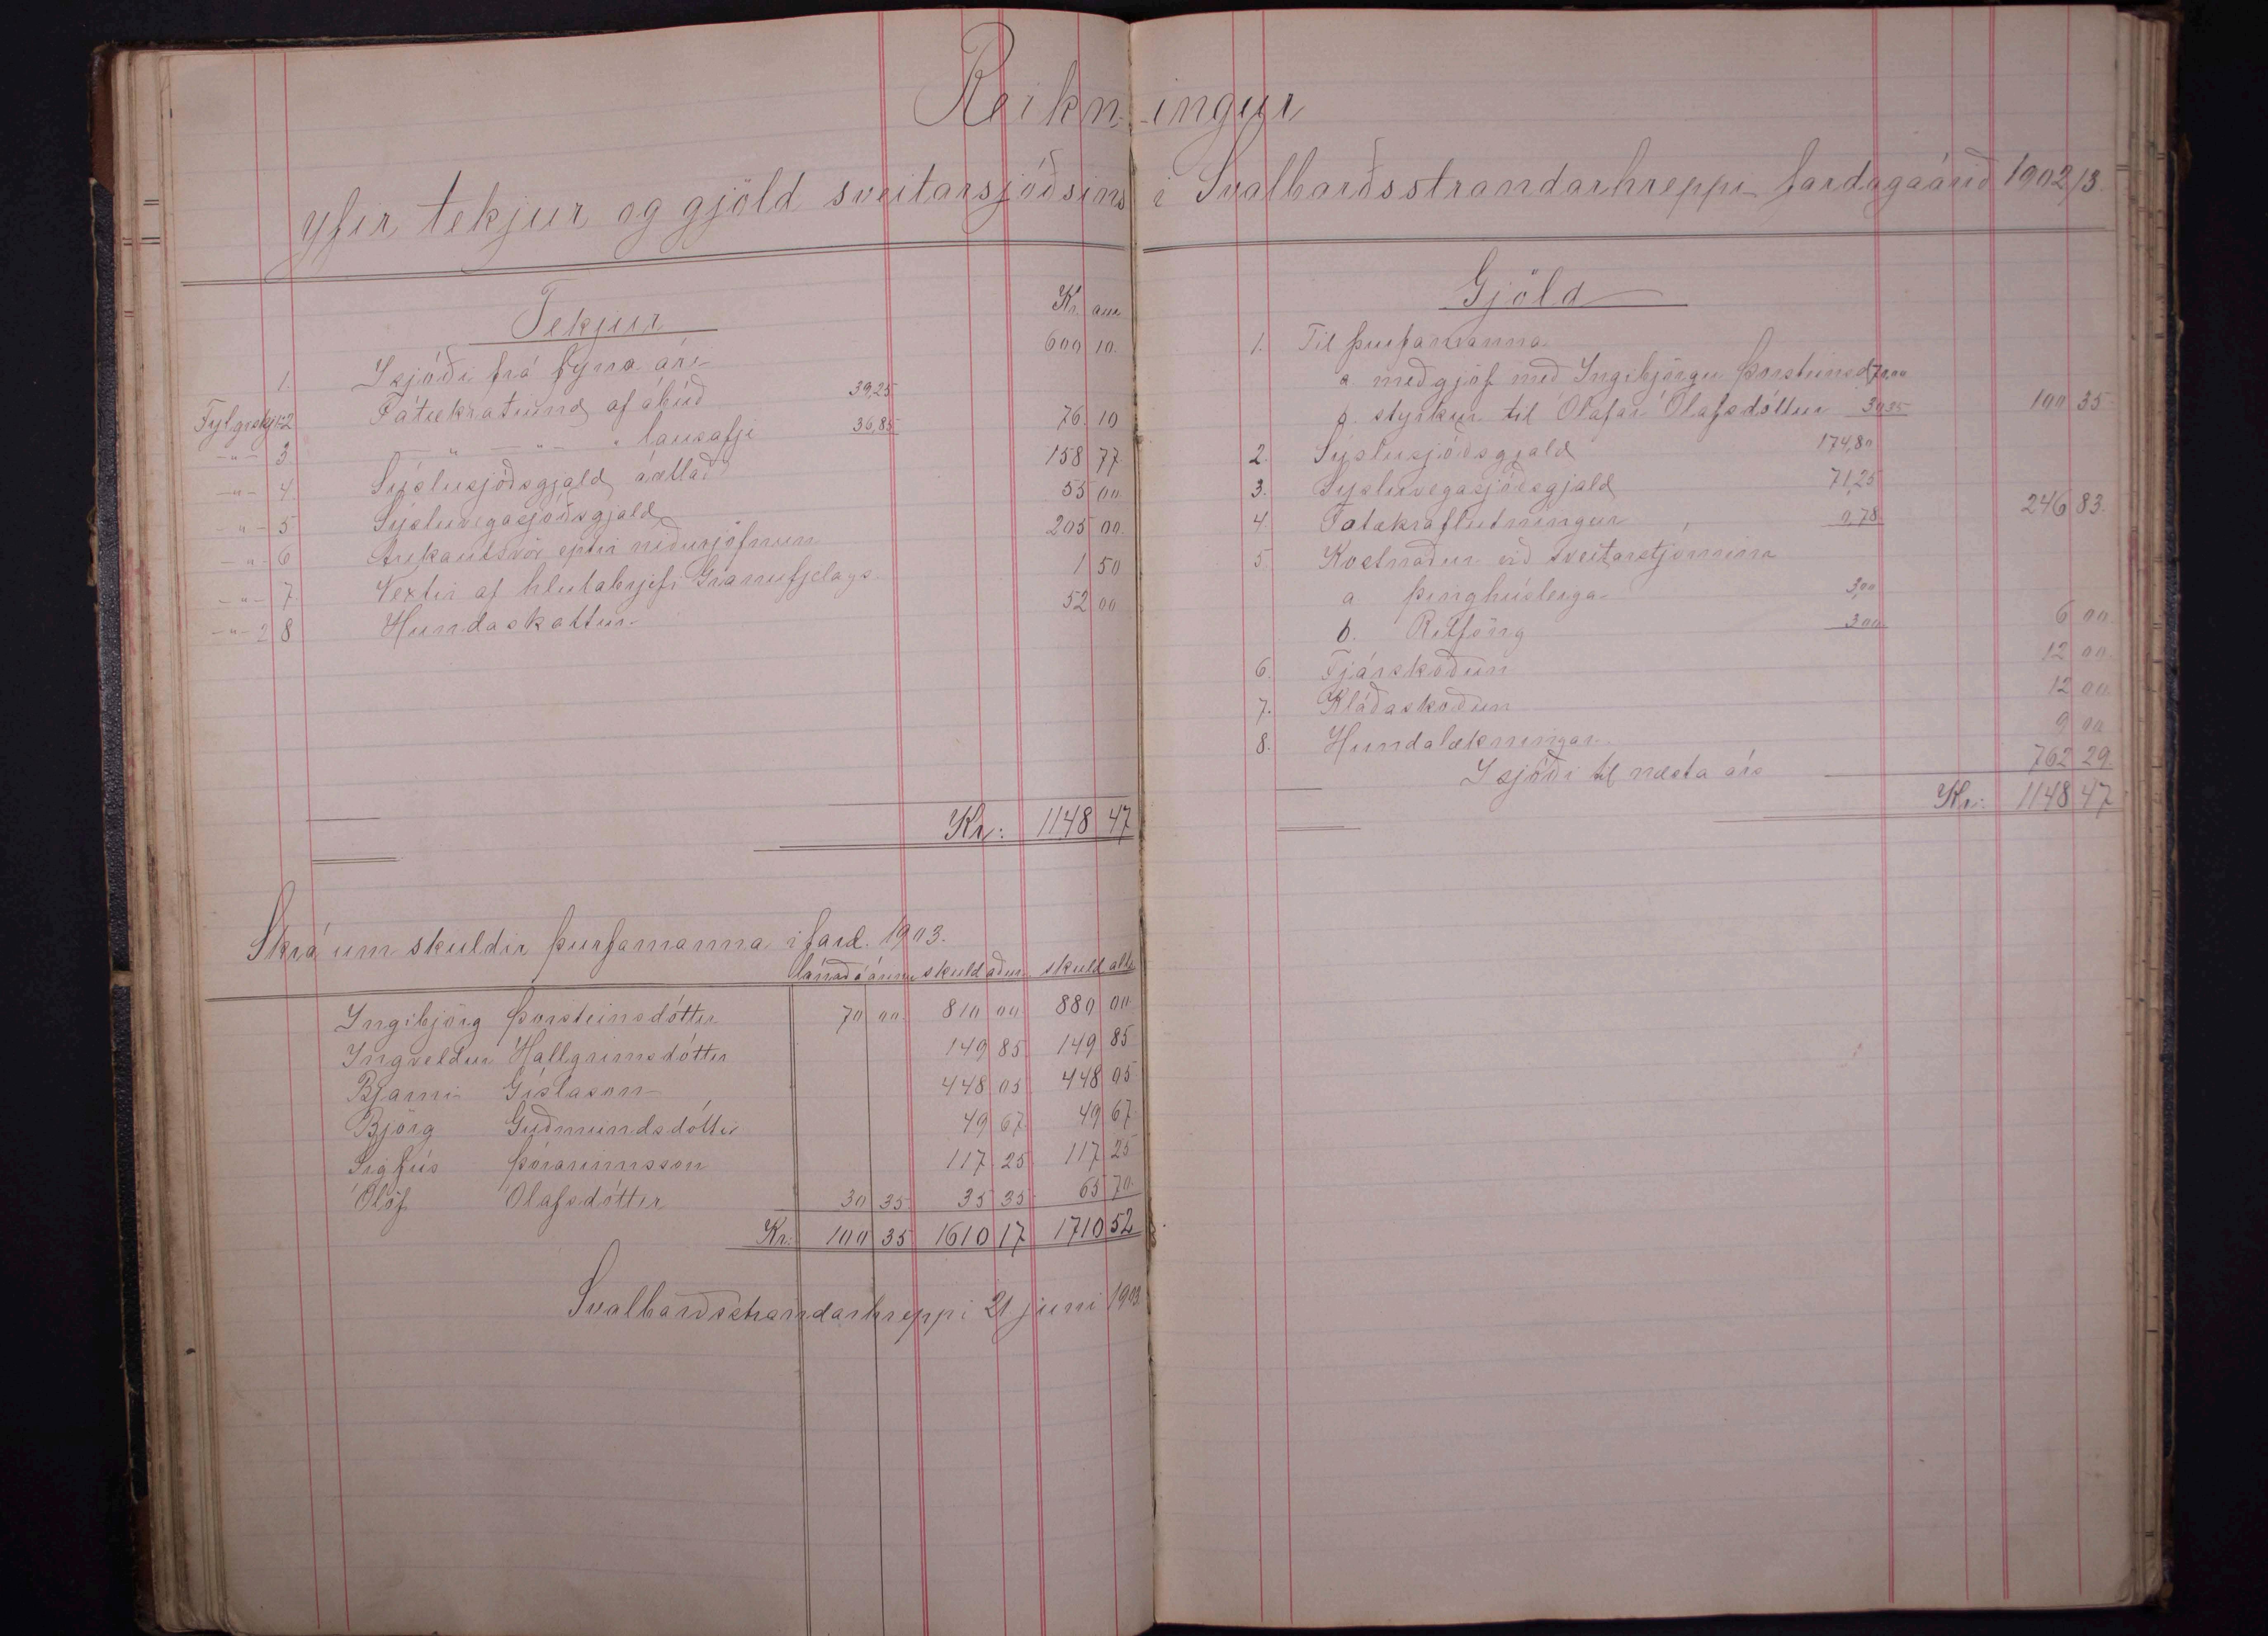 Reikn-ingur
yfir tekjur og gjöld sveitarsjóðsins í Svalbarðsstrandarhreppi fardagaárið 1902/3.
Tekjur Kr. aur
1. Í sjóði frá fyrra ári 600 10
Fylgiskj. 1-2 Fátækratíund af ábúð 39,25
-"- 3 -"- -"- " lausafje 36,85 76 10
-"- 4. Sýslusjóðsgjald áætlað 158 77
-"- 5 Sýsluvegasjóðsgjald 55 00
-"- 6 Aukaútsvör eptir niðurjöfnun 205 00
-"- 7. Vextir af hlutabrjefi Gránufjelags 1 50
-"- 2 8 Hundaskattur 52 00
Kr: 1148 47
Skrá um skuldir þurfamanna í fard. 1903.
lánað á árinu skuld áður skuld alls
Ingibjörg Þorsteinsdóttir 70 00 810 00 880 00
Ingveldur Hallgrímsdóttir 149 85 149 85
Bjarni Gíslason 448 05 448 05
Björg Guðmundsdóttir 49 67 49 67
Sigfús Þórarinnsson 117 25 117 25
Ólöf Ólafsdóttir 30 35 35 35 65 70
Kr: 100 35 1610 17 1710 52
Svalbarðsstrandarhreppi 21 júni 1903.
Gjöld
1. Til þurfamanna
a meðgjöf með Ingibjörgu Þorsteinsd 70,00
b. styrkur til Ólafar Ólafsdóttur 30 35 100 35
2. Sýslusjóðsgjald 174,80
3. Sýsluvegasjóðsgjald 71,25
4. Fátækraflutningur 0,78 246 83
5. Kostnaður við sveitarstjórnina
a þinghúsleiga 3,00
b. Ritföng 3 00 6 00
6. Fjárskoðun 12 00
7. Kláðaskoðun 12 00
8. Hundalækningar 9 00
Í sjóði til næsta árs 762 29
Kr: 1148 47